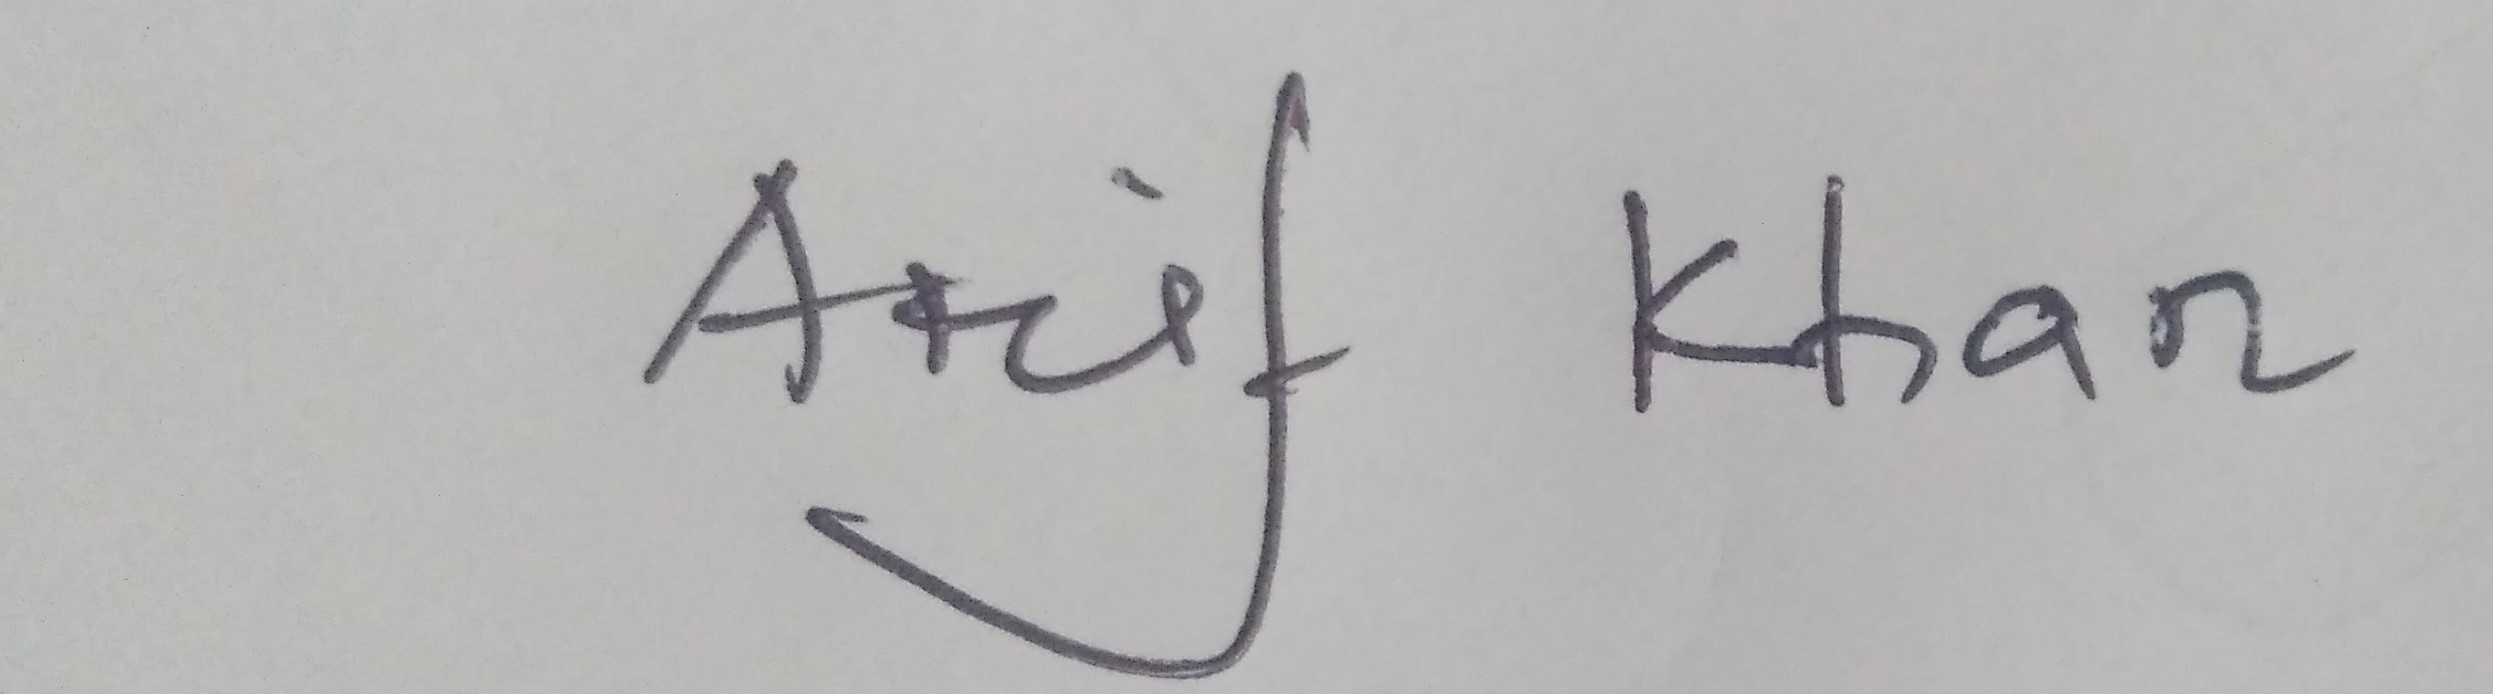 Arif Khan